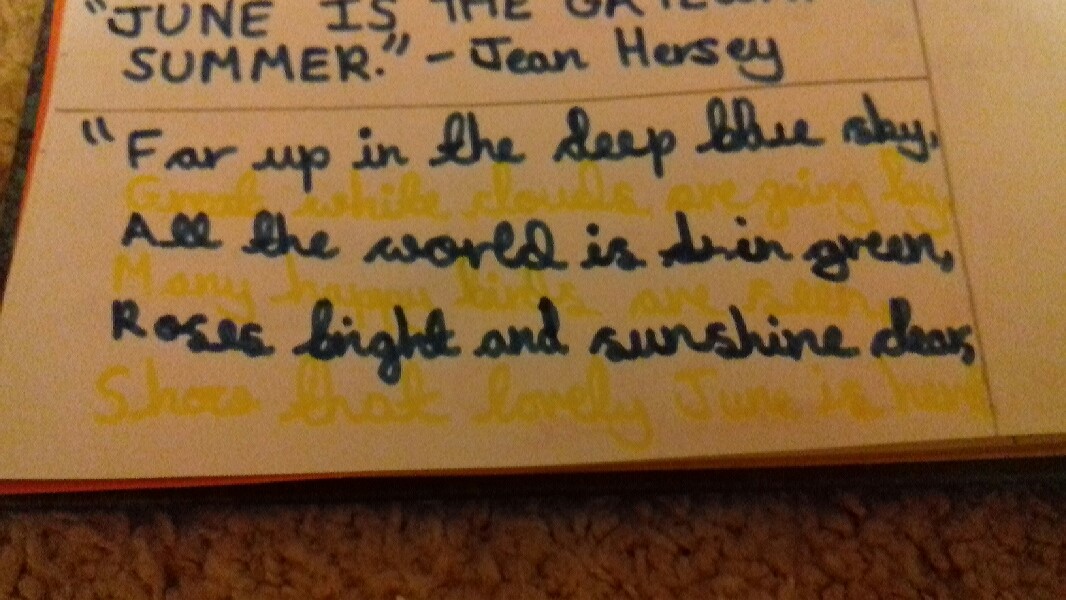 "JUNE IS THE GATEWAY
SUMMER." - Jean Hersey
"Far up in the deep blue sky,
Great white clouds are going by,
All the world is dr in green,
Many happy birds are seen,
Roses bright and sunshine clear,
Shows that lovely June is here